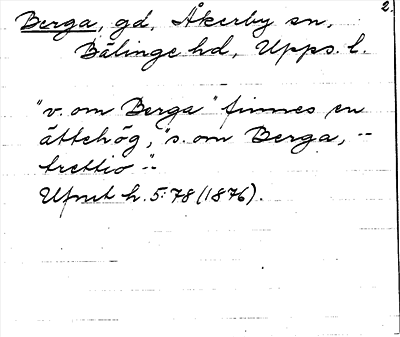 2.
Berga, gd, Åkerby sn,
Bälinge hd, Upps. l.
"v. om Berga" finnes en
ättehög, "s. om Berga, --
trettio"--
Ufmt h. 5:78 (1876).